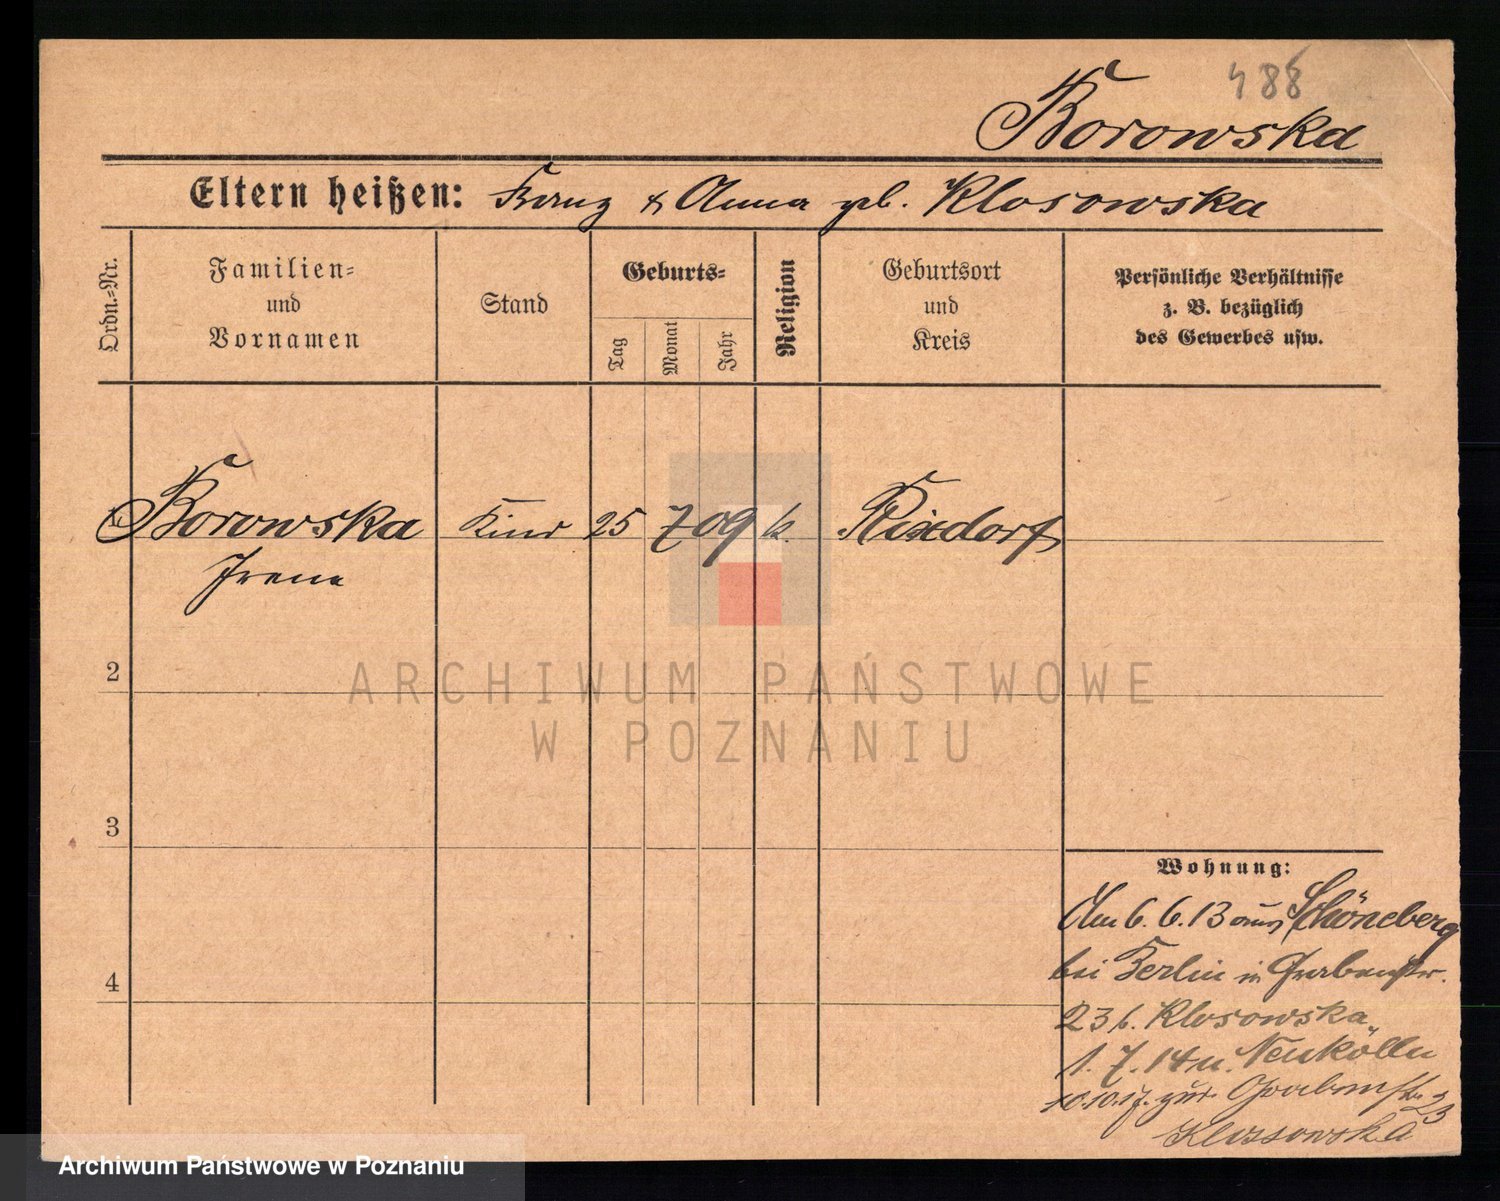 488
Borowska
Eltern heißen: Franz & Anna geb. Klosowska
Ordn.=Nr.
Familien=
und
Vornamen
Stand
Geburts=
Tag
Monat
Jahr
Religion
Geburtsort
und
Kreis
Persönliche Verhältnisse
z. B. bezüglich
des Gewerbes usw.
1 Borowska Kind 25 7 09 k. Rixdorf
Irena
2
3
4
Wohnung:
Am 6.6.13 aus Schöneberg
bei Berlin in Grabenstr.
23 b. Klosowska
1.7.14 n. Neukölln
10.10.17. zur. Grabenstr. 23
Klossowska
ARCHIWUM PAŃSTWOWE
W POZNANIU
Archiwum Państwowe w Poznaniu